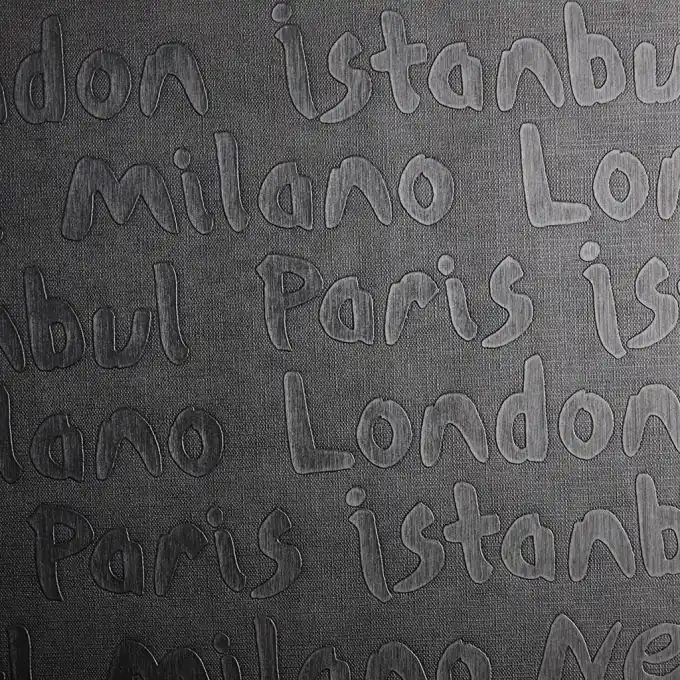 ndon istanbu
Milano Lon
nbul Paris is
lano London
Paris istanb
l Milano Ne